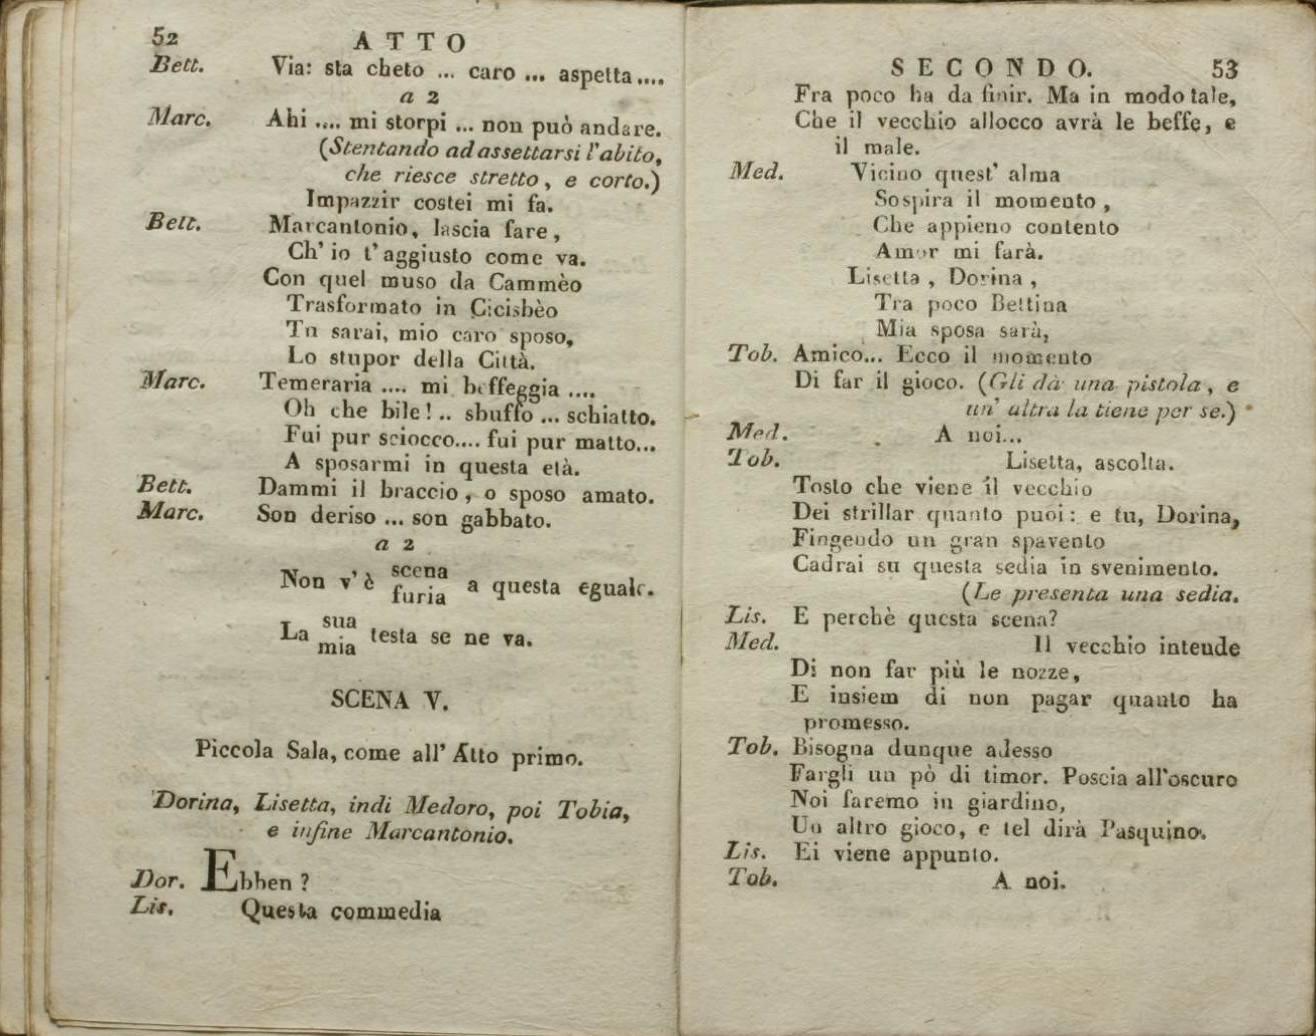 52 ATTO
Bett. Via: sta cheto ... caro ... aspetta....
a 2
Marc. Ahi .... mi storpi ... non può andare.
(Stentando ad assettarsi l'abito,
che riesce stretto, e corto.)
Impazzir costei mi fa.
Bett. Marcantonio, lascia fare,
Ch' io t'aggiusto come va.
Con quel muso da Cammèo
Trasformato in Cicisbèo
Tu sarai, mio caro sposo,
Lo stupor della Città.
Marc. Temeraria .... mi beffeggia ....
Oh che bile! .. sbuffo ... schiatto.
Fui pur sciocco.... fui pur matto...
A sposarmi in questa età.
Bett. Dammi il braccio, o sposo amato.
Marc. Son deriso ... son gabbato.
a 2
Non v'è scena furia a questa eguale.
La sua mia testa se ne va.
SCENA V.
Piccola Sala, come all' Atto primo.
Dorina, Lisetta, indi Medoro, poi Tobia,
e infine Marcantonio.
Dor. Ebben ?
Lis. Questa commedia
SECONDO. 53
Fra poco ha da finir. Ma in modo tale,
Che il vecchio allocco avrà le beffe, e
il male.
Med. Vicino quest' alma
Sospira il momento,
Che appieno contento
Amor mi farà.
Lisetta, Dorina,
Tra poco Bettina
Mia sposa sarà,
Tob. Amico... Ecco il momento
Di far il gioco. (Gli dà una pistola, e
un' altra la tiene per se.)
Med. A noi...
Tob. Lisetta, ascolta.
Tosto che viene il vecchio
Dei strillar quanto puoi: e tu, Dorina,
Fingendo un gran spavento
Cadrai su questa sedia in svenimento.
(Le presenta una sedia.
Lis. E perchè questa scena?
Med. Il vecchio intende
Di non far più le nozze,
E insiem di non pagar quanto ha
promesso.
Tob. Bisogna dunque adesso
Fargli un pò di timor. Poscia all'oscuro
Noi faremo in giardino,
Un altro gioco, e tel dirà Pasquino.
Lis. Ei viene appunto.
Tob. A noi.